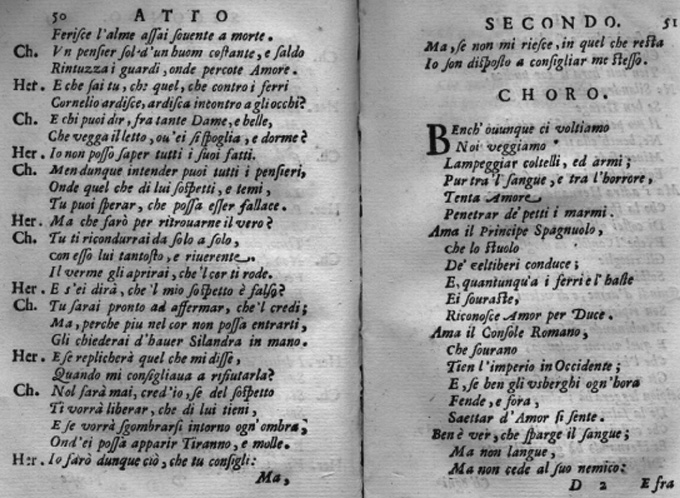 50 ATTO
Feriſce l'alme aſſai ſouente a morte.
Ch. Vn penſier ſol d'un huom coſtante, e ſaldo
Rintuzza i guardi, onde percote Amore.
Her. E che ſai tu, che quel, che contro i ferri
Cornelio ardiſce, ardiſca incontro a gli occhi?
Ch. E chi puoi dir, fra tante Dame, e belle,
Che vegga il letto, ou'ei ſi ſpoglia, e dorme?
Her. Io non poſſo ſaper tutti i ſuoi fatti.
Ch. Men dunque intender puoi tutti i penſieri,
Onde quel che di lui ſoſpetti, e temi,
Tu puoi ſperar, che poſſa eſſer fallace.
Her. Ma che farò per ritrouarne il vero?
Ch. Tu ti ricondurrai da ſolo a ſolo,
con eſſo lui tantoſto, e riuerente.
Il verme gli aprirai, che'l cor ti rode.
Her. E s'ei dirà, che'l mio ſoſpetto è falſo?
Ch. Tu ſarai pronto ad affermar, che'l credi;
Ma, perche piu nel cor non poſſa entrarti,
Gli chiederai d'hauer Silandra in mano.
Her. E ſe replicherà quel che mi diſſe,
Quando mi conſigliaua a rifiutarla?
Ch. Nol farà mai, cred'io, ſe del ſoſpetto
Ti vorrà liberar, che di lui tieni,
E ſe vorrà ſgombrarſi intorno ogn'ombra,
Ond'ei poſſa apparir Tiranno, e molle.
Her. Io farò dunque ciò, che tu conſigli:
Ma,
SECONDO. 51
Ma, ſe non mi rieſce, in quel che reſta
Io ſon diſpoſto a conſigliar me ſteſſo.
CHORO.
Bench' ouunque ci voltiamo
Noi veggiamo
Lampeggiar coltelli, ed armi;
Pur tra'l ſangue, e tra l'horrore,
Tenta Amore
Penetrar de' petti i marmi.
Ama il Principe Spagnuolo,
che lo ſtuolo
De' celtiberi conduce;
E, quantunqu'a i ferri e l'haſte
Ei ſouraſte,
Riconoſce Amor per Duce.
Ama il Conſole Romano,
Che ſourano
Tien l'imperio in Occidente;
E, ſe ben gli vsberghi ogn'hora
Fende, e fora,
Saettar d'Amor ſi ſente.
Ben è ver, che ſparge il ſangue;
Ma non langue,
Ma non cede al ſuo nemico:
D 2 E fra